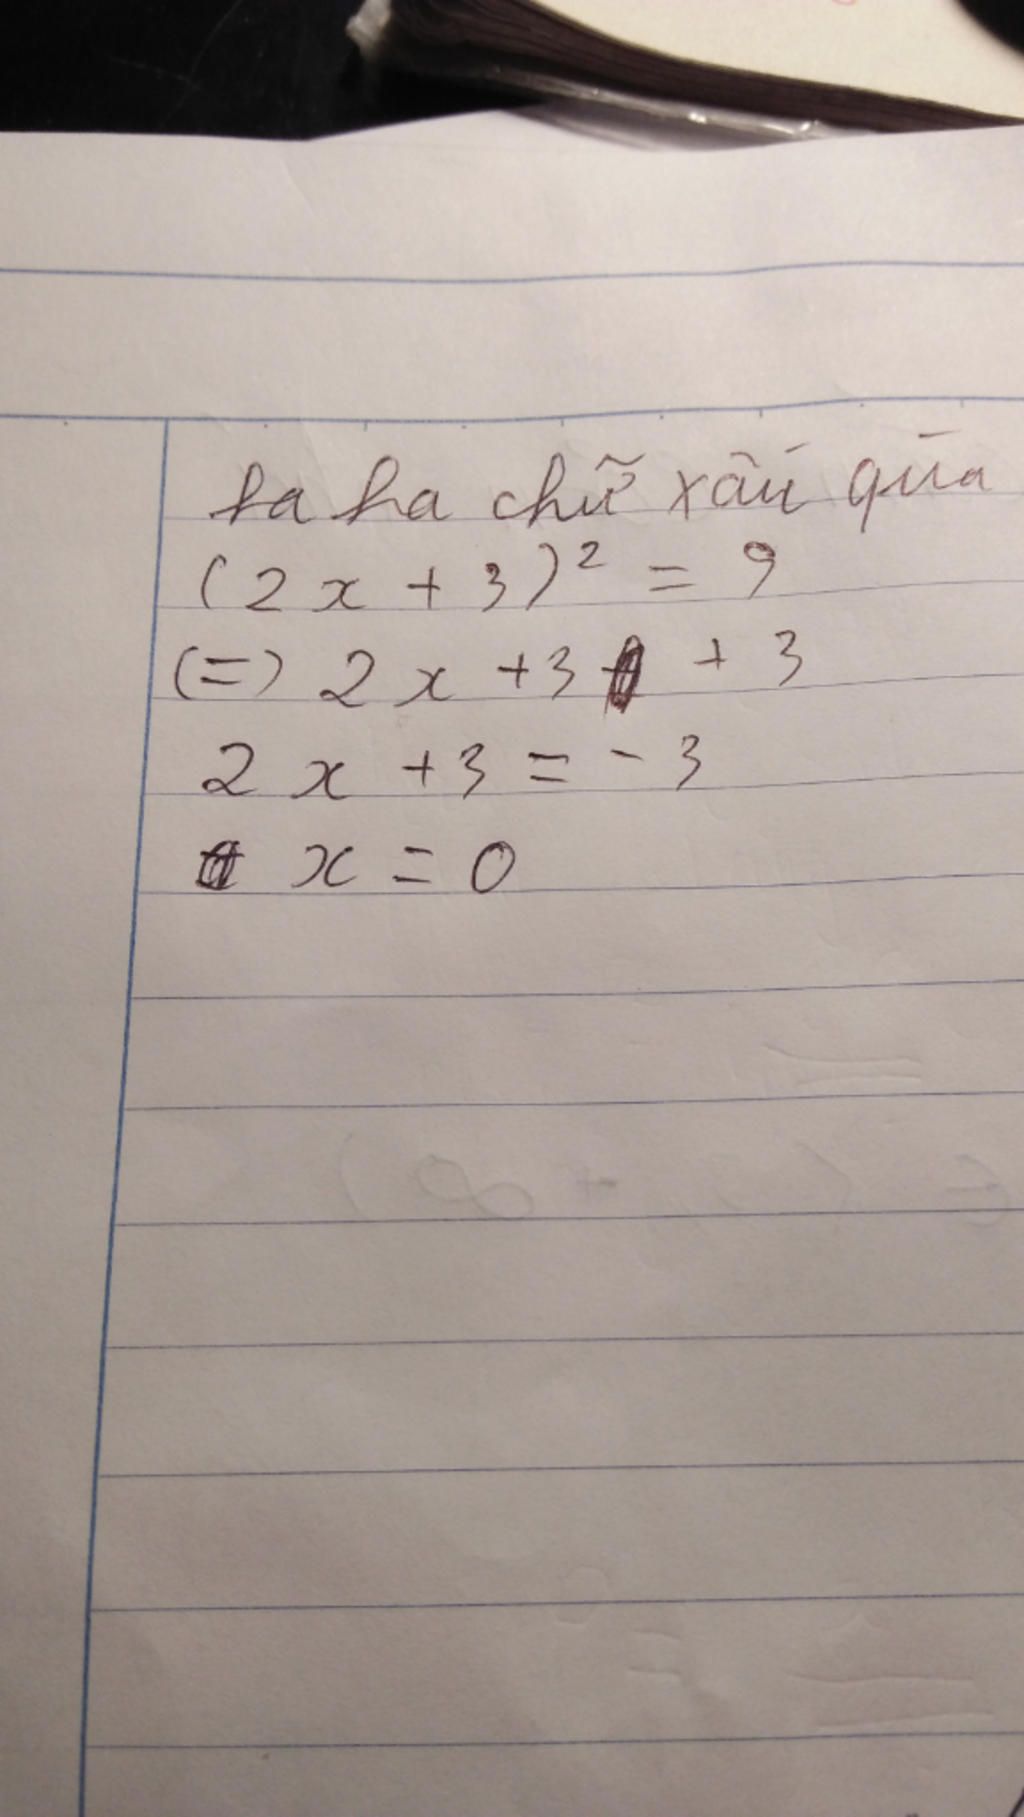 ha ha chữ xấu qúa
(2x + 3)² = 9
(=) 2x + 3 + 3
2x + 3 = - 3
x = 0